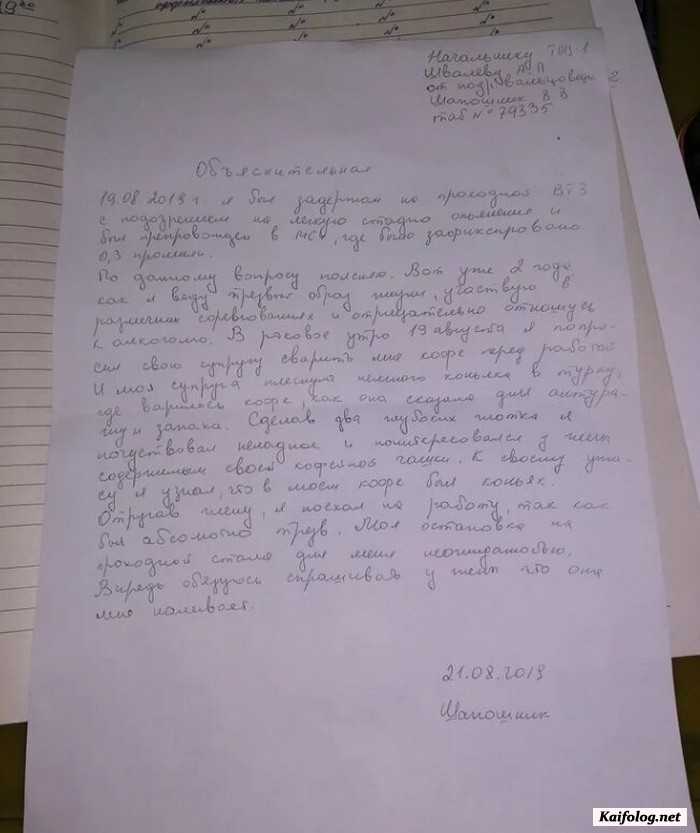 Начальнику ТПЦ-1
Швалеву А.П
от подр. вальцовщи
Шапошник В В
таб № 79335
Объяснительная
19.08 2019 г. я был задержан на проходной ВТЗ
с подозрением на легкую стадию опьянения и
был препровожден в МСЧ, где было зафиксировано
0,3 промили.
По данному вопросу поясняю. Вот уже 2 года
как я веду трезвый образ жизни, участвую в
различных соревнованиях и отрицательно отношусь
к алкоголю. В роковое утро 19 августа я попро-
сил свою супругу сварить мне кофе перед работой
И моя супруга плеснула немного коньяка в турку,
где варилось кофе, как она сказала для антура-
жу и запаха. Сделав два глубоких глотка я
почуствовал неладное и поинтересовался у жены
содержимым своей кофейной чашки. К своему ужа-
су я узнал, что в моем кофе был коньяк.
Отругав жену, я поехал на работу, так как
был абсолютно трезв. Моя остановка на
проходной стала для меня неожиданостью.
Впредь обязуюсь спрашивать у жены что она
мне наливает.
21.08.2019
Шапошник
Kaifolog.net